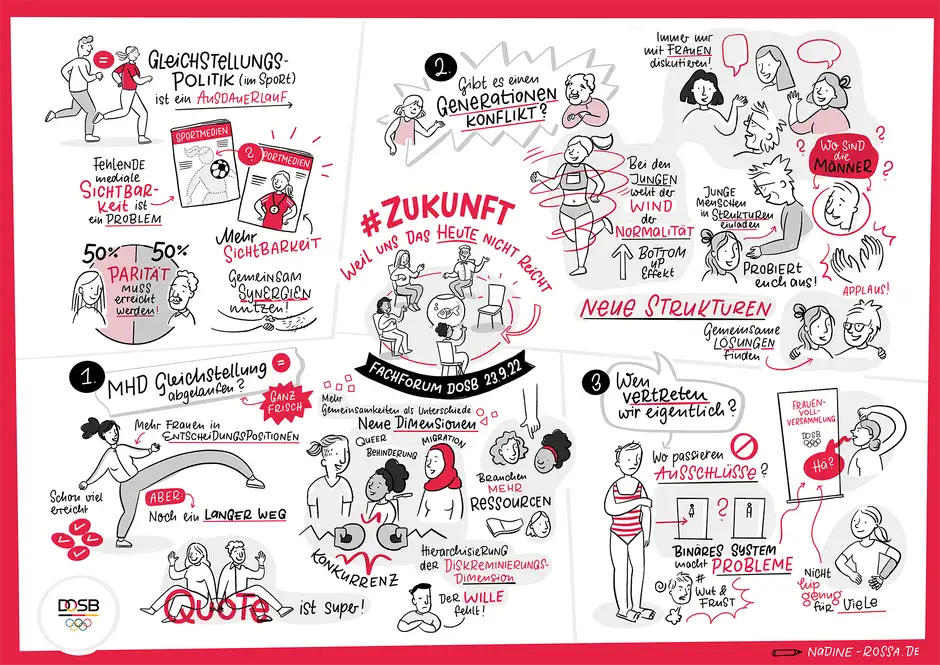 =
GLEICHSTELLUNGS-
POLITIK (im SPORT)
ist ein AUSDAUERLAUF
SPORTMEDIEN
?
PORTMEDIEN
FEHLENDE
mediale
SICHTBAR-
KEIT ist
ein PROBLEM
MEHR
SICHTBARKEIT
50% 50%
PARITÄT
muss
erreicht
werden!
GEMEINSAM
SYNERGIEN
nutzen!
#ZUKUNFT
WEIL UNS DAS HEUTE NICHT REICHT
FACHFORUM DOSB 23.9.22
2.
Gibt es einen
GENERATIONEN
KONFLIKT?
Immer nur
mit FRAUEN
diskutieren!
WO SIND
die
MÄNNER
?
?
?
?
Bei den
JUNGEN
weht der
WIND
der
NORMALITÄT
BOTTOM
UP
EFFEKT
JUNGE
MENSCHEN
in STRUKTUREN
einladen
PROBIERT
euch aus!
APPLAUS!
NEUE STRUKTUREN
GEMEINSAME
LÖSUNGEN
finden
1.
MHD Gleichstellung
abgelaufen?
=
GANZ
FRISCH
Mehr Frauen in
ENTSCHEIDUNGSPOSITIONEN
Schon viel
erreicht
ABER
Noch ein LANGER WEG
QUOTE ist super!
Mehr
Gemeinsamkeiten als Unterschiede
Neue Dimensionen
QUEER
BEHINDERUNG
MIGRATION
KONKURRENZ
Branchen
MEHR
RESSOURCEN
HIERARCHISIERUNG
DER DISKRIMINIERUNGS-
DIMENSION
DER WILLE
fehlt!
3
Wen
vertreten
wir eigentlich?
Wo passieren
AUSSCHLÜSSE?
?
BINÄRES SYSTEM
macht PROBLEME
#
Wut &
FRUST
FRAUEN-
VOLL-
VERSAMMLUNG
DOSB
Hä?
NICHT
hip
genug
für VIELE
DOSB
NADINE-ROSSA.DE